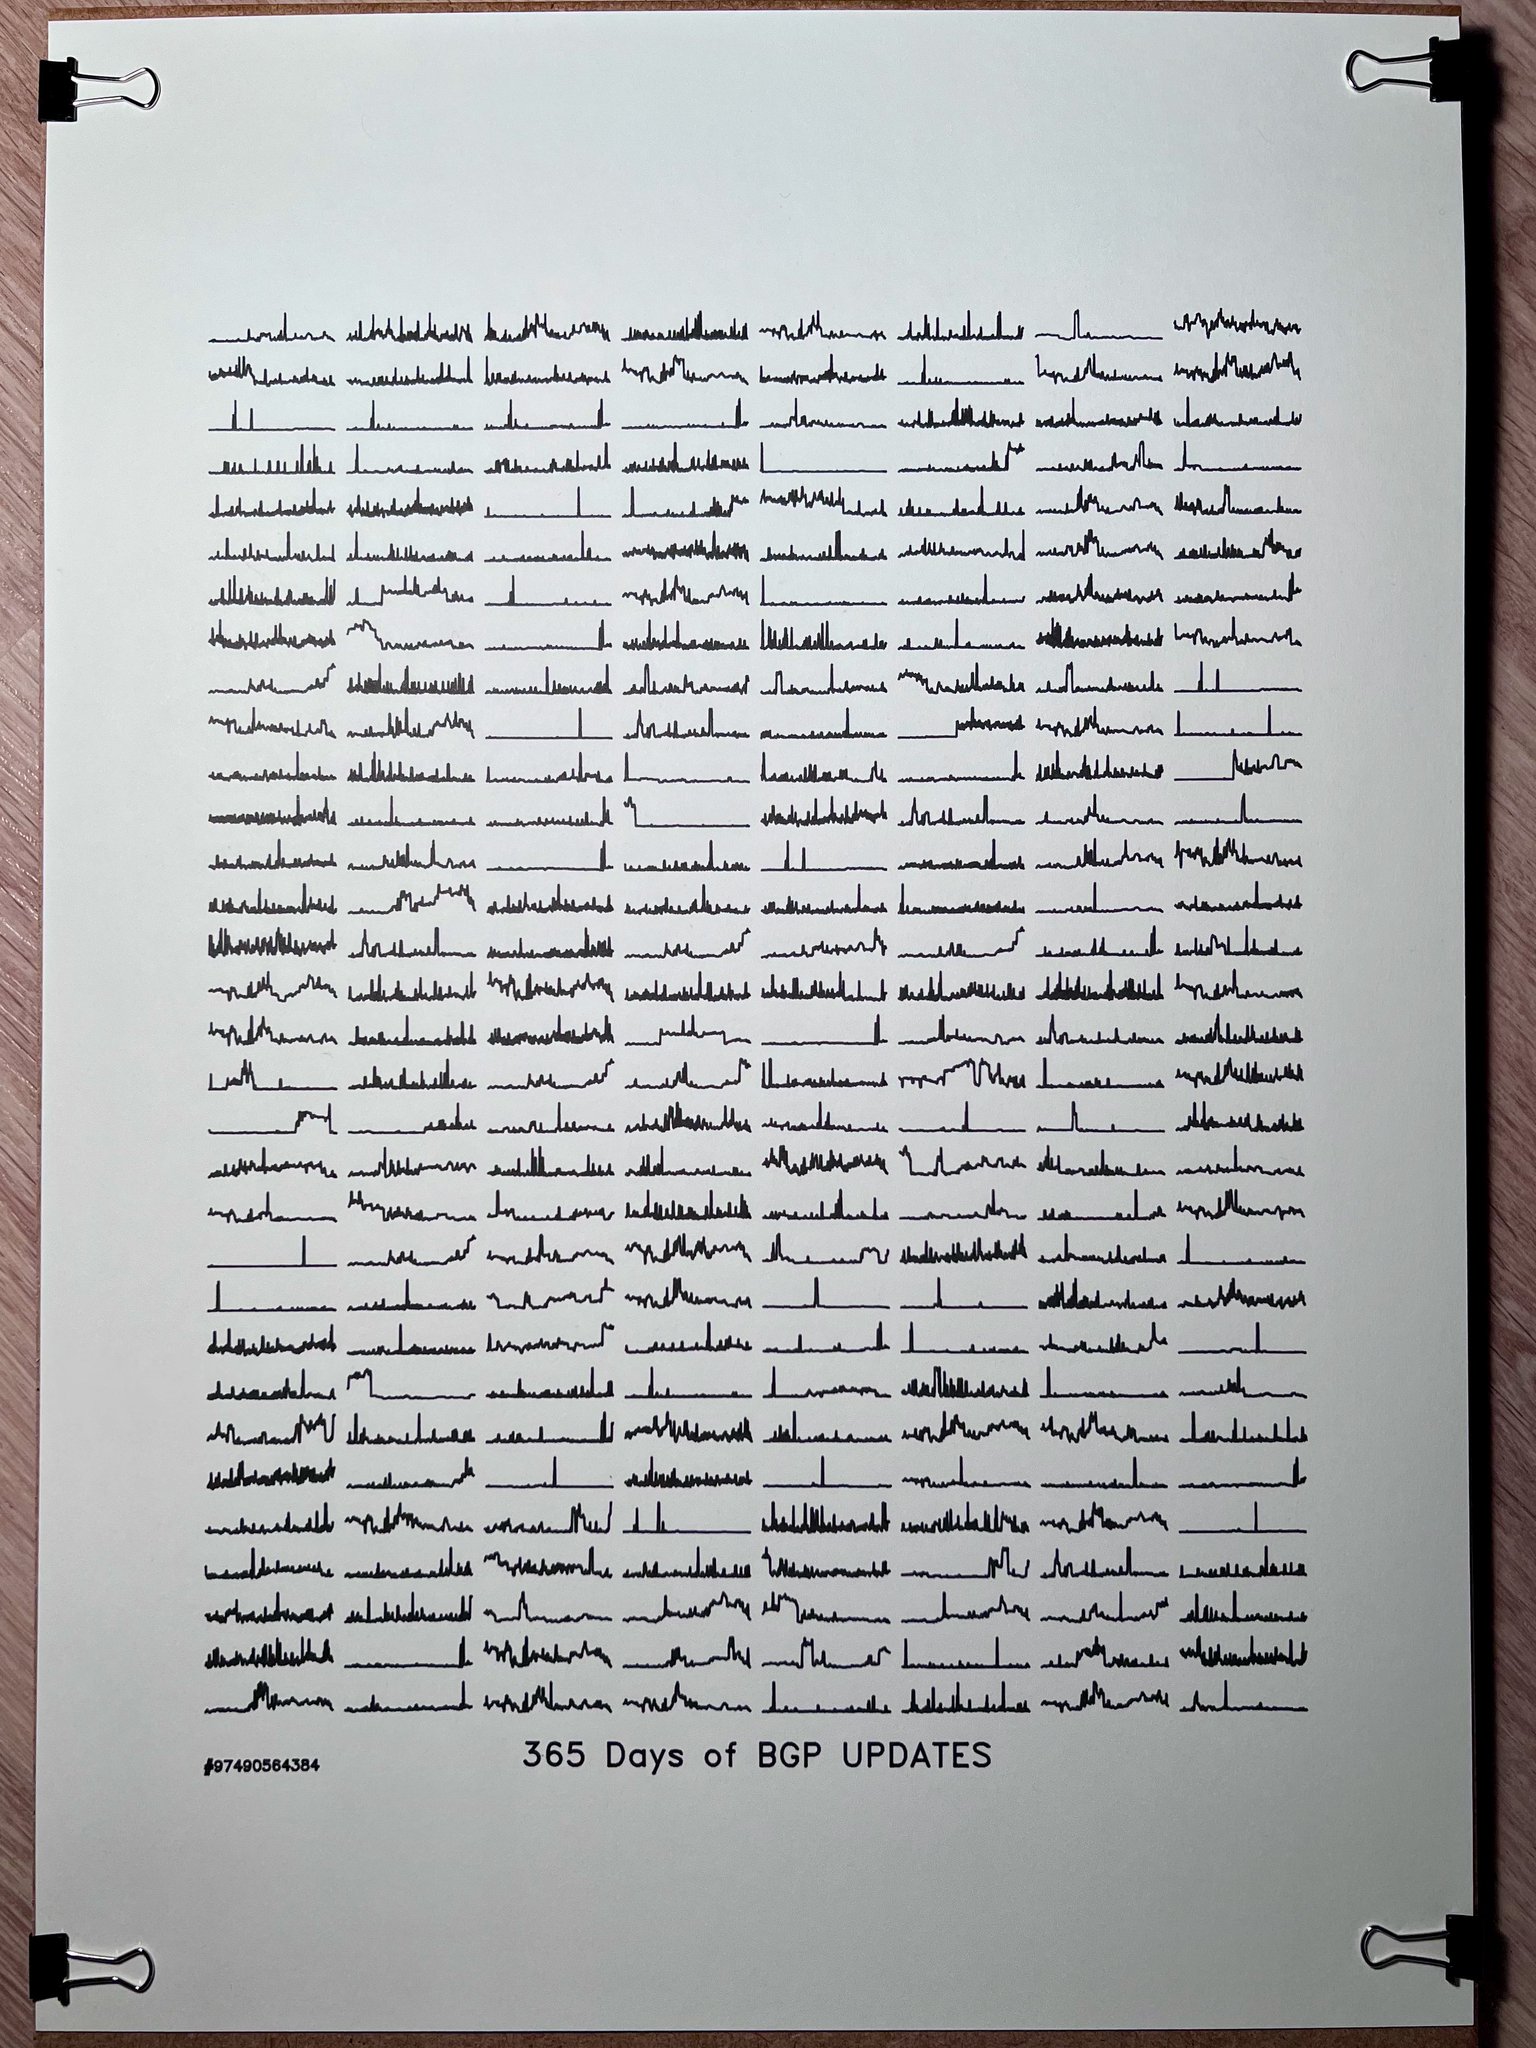 365 Days of BGP UPDATES
#97490564384